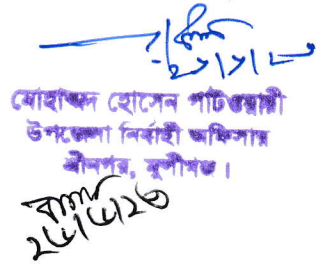 ২৮/৮/২৩
মোহাম্মদ হোসেন পাটওয়ারী
উপজেলা নির্বাহী অফিসার
শ্রীনগর, মুন্সীগঞ্জ।
২৮/৮/২৩